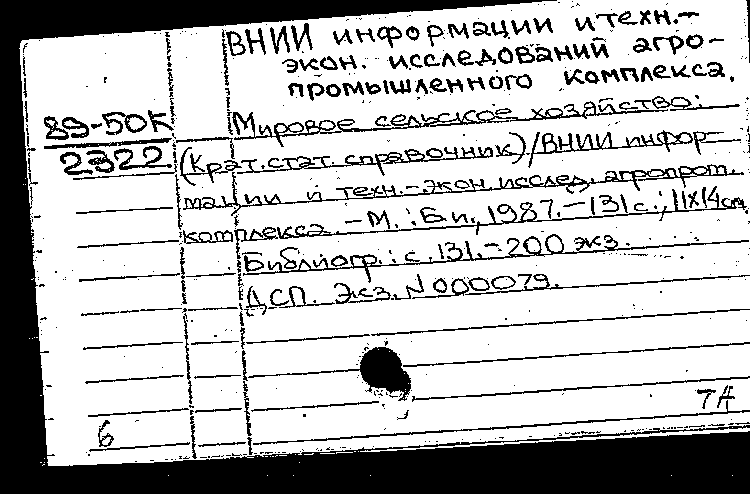 ВНИИ информации и техн.-
экон. исследований агро-
промышленного комплекса.
89-50К
2322
Мировое сельское хозяйство:
(Крат. стат. справочник)/ВНИИ инфор-
мации и техн.-экон. исслед. агропром.
комплекса. - М.: Б.и., 1987. - 131 с.; 11х14 см
Библиогр.: с. 131. - 200 экз.
ДСП. Экз. N 000079.
6
7А